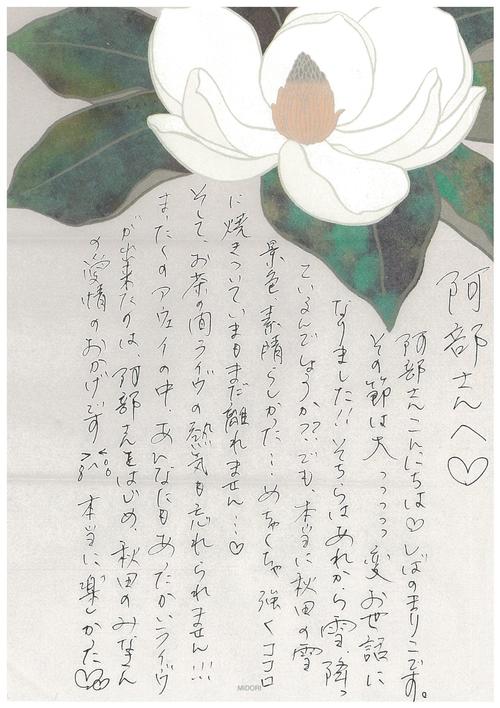 阿部さんへ♡
阿部さんこんにちは♡しばのまりこです。
その節は大っっっっ変お世話に
なりました!!そちらはあれから雪降っ
ているんでしょうか??でも、本当に秋田の雪
景色、素晴らしかった…めちゃくちゃ強くココロ
に焼きついていまもまだ離れません…♡
そして、お茶の間ライヴの熱気も忘れられません!!!
まったくのアウェイの中、あんなにもあったかいライヴ
が出来たのは、阿部さんをはじめ、秋田のみなさん
の愛情のおかげです 本当に楽しかった♡♡
MIDORI